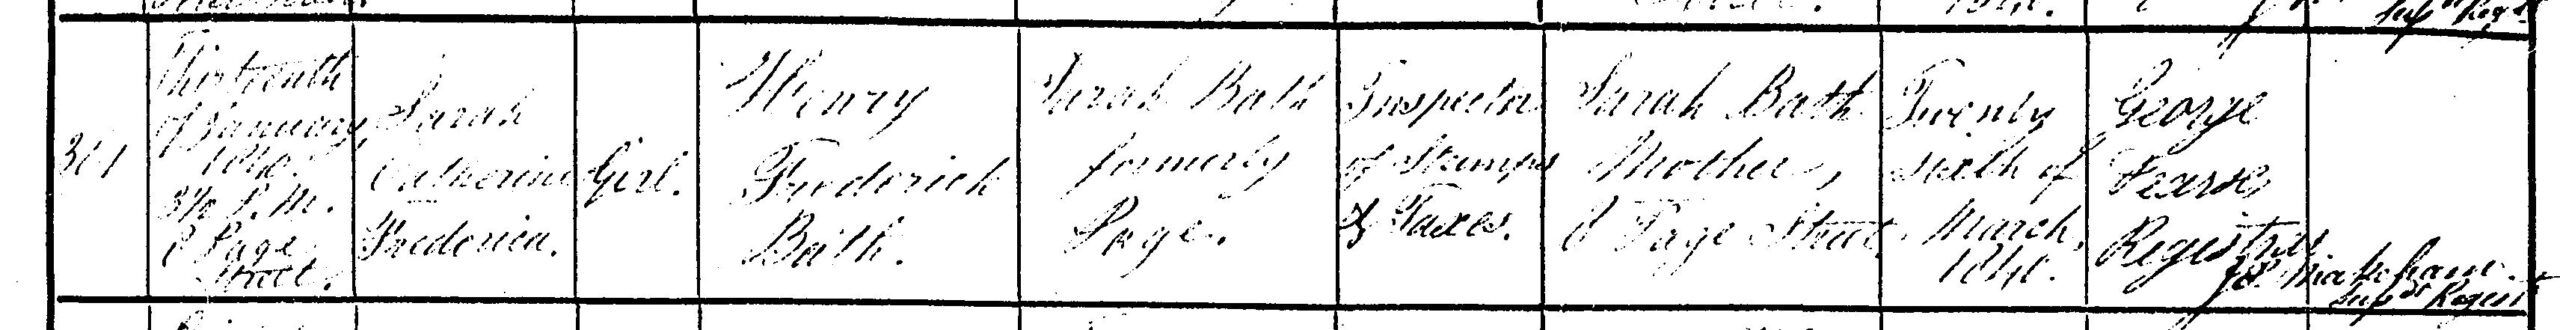 301
Thirteenth
of January,
1840.
3½ P.M.
8 Page
Street.
Sarah
Catherine
Frederica.
Girl.
Henry
Frederick
Bath.
Sarah Bath
formerly
Page.
Inspector
of Stamps
& Taxes.
Sarah Bath
Mother,
8 Page Street
Twenty
sixth of
March,
1840.
George
Pearse,
Registrar
Supdt Regist